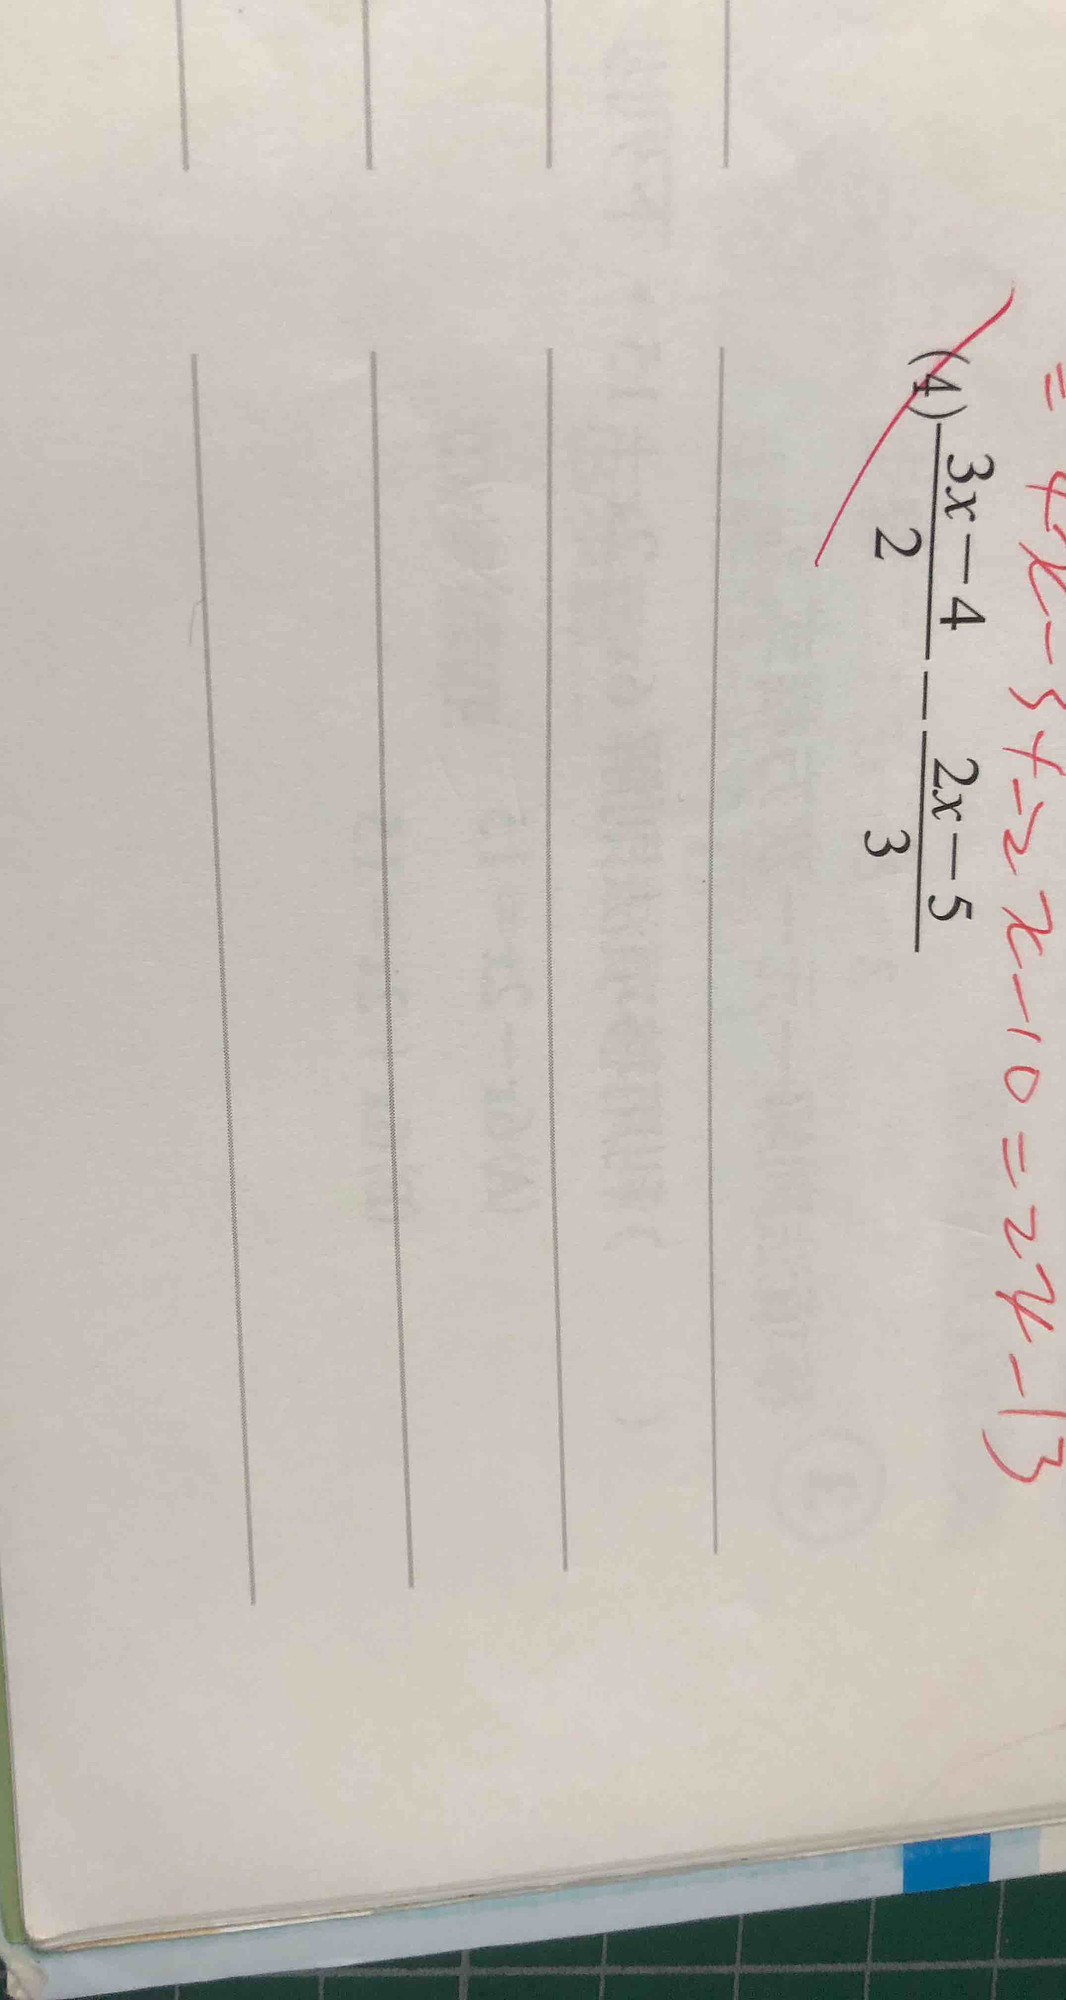 = 4x-3+-2x-10=2x-13
(4) \frac{3x-4}{2} - \frac{2x-5}{3}